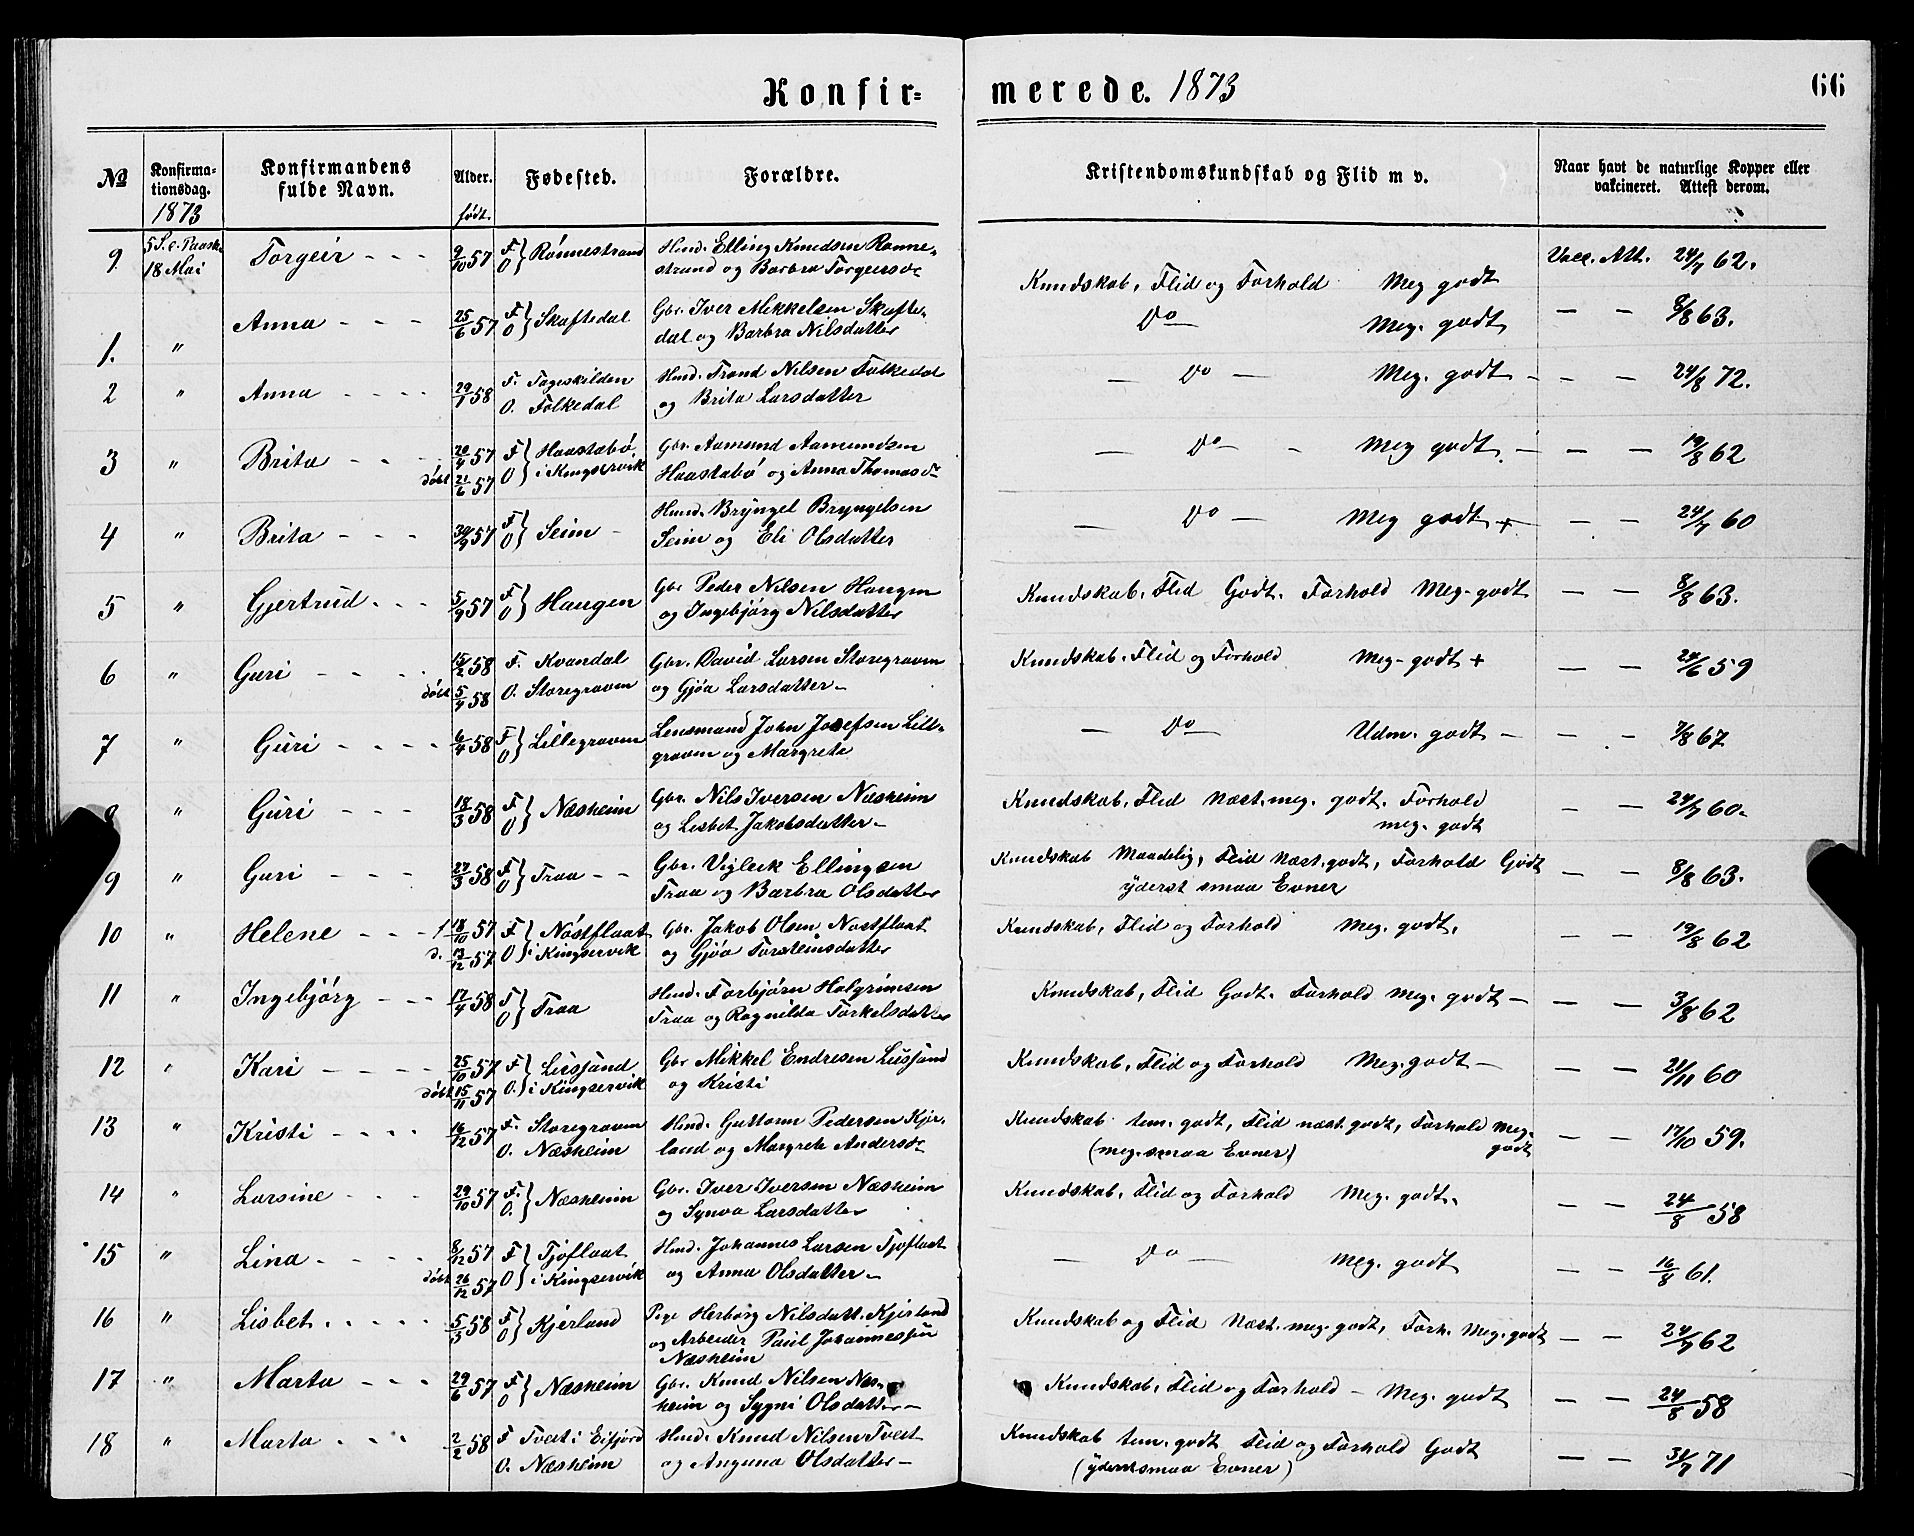 Konfir=
merede. 1873
66
№ Konfirma-
tionsdag.
1873
Konfirmandens
fulde Navn.
Alder.
født.
Fødested.
Forældre.
Kristendomskundskab og Flid m v.
Naar havt de naturlige Kopper eller
vakcineret. Attest derom.
9 5 S. e. Paaske Torgeir - - - 9/10 57 F. O } Rönnestrand Hmd. Elling Knudsen Rønne- Vacc. Att. 24/7 62.
18 Mai strand og Barbra Torgeirsdr Kundskab, Flid og Forhold Meg godt
1. " Anna - - - 25/6 57 F O } Skaftedal Gbr. Iver Mikkelsen Skafte- Do Meg. godt — — 8/8 63.
dal og Barbra Nilsdatter
2 " Anna - - - - 29/1 58 F. Tageskilden Hmd. Trond Nilsen Folkedal — Do — Meg. godt - — — 24/8 72.
O. Folkedal og Brita Larsdatter
3 " Brita - - - 20/4 57 F O } Haastabø, Gbr. Aamund Aamundsen — Do — Meg godt. — — 19/8 62
döbt 21/6 57 i Kingservik Haastabø og Anna Thomasdr
4 " Brita - - - 30/9 57 F O } Seim - Hmd. Bryngel Bryngelsen — Do — Meg godt + — — 24/7 60
Seim og Eli Olsdatter
5 " Gjertrud. - - 5/9 57 F O } Haugen Gbr Peder Nilsen Haugen Kundskab, Flid Godt. Forhold Meg. godt — — 8/8 63.
og Ingebjörg Nilsdatter
6 " Guri - - - 15/2 58 F. Kvandal Gbr. David Larsen Storegraven Kundskab. Flid og Forhold Meg. godt + — — 24/6 59
döbt 5/4 58 O. Storegraven og Gjöa Larsdatter -
7 " Guri - - - - 6/4 58 F O } Lillegraven Lensmand John Josefsen Lille- — Do — Udm. godt — — - 7/8 67
graven og Margrete
8 " Guri - - - 18/3 58 F O } Næsheim Gbr. Nils Iversen Næsheim Kundskab, Flid Næst. meg. godt. Forhold — — 24/7 60.
og Lisbet Jakobsdatter - meg. godt
9 " Guri - - - 27/3 58 F O } Traa - - Gbr. Vigleik Ellingsen Kundskab Maadelig, Flid Næst. godt, Forhold Godt — — 8/8 63.
Traa og Barbra Olsdatter yderst smaa Evner
10 " Helene - - - f. 18/10 57 F O } Nóstflaat Gbr. Jakob Olsen Nostflaat Kundskab, Flid og Forhold Meg. godt. — — 19/8 62
d. 13/12 57 i Kingservik og Gjöa Torsteinsdatter
11 " Ingebjörg - - - 17/4 58 F O } Traa Hmd. Torbjörn Halgrimsen Kundskab, Flid Godt. Forhold Meg. godt — — — 3/8 62
Traa og Ragnilda Torkelsdatter
12 " Kari - - - - 25/10 57 F O. } Lusjand Gbr Mikkel Endresen Lusjand Kundskab, Flid og Forhold Meg. godt — — — 21/11 60
döbt 15/11 57 i Kingservik og Kristi
13 " Kristi - - - - 16/12 57 F. Storegraven Hmd. Guttorm Pedersen Kjer- Kundskab tem. godt, Flid næst. godt, Forhold Meg. — — 17/10 59.
O. Næsheim land og Margrete Andersdr (meg. smaa Evner) godt
14 " Larsine - - - 29/10 57 F. O. } Næsheim Gbr. Iver Iversen Næsheim Kundskab, Flid og Forhold Meg. godt. — — 24/8 58
og Synva Larsdatter
15 " Lina - - - - 8/12 57 F O } Tjoflaat Hmd. Johannes Larsen Tjoflaat — Do — Meg. godt — — 16/8 61.
döbt 26/12 57 i Kingservik og Anna Olsdatter -
16 " Lisbet. - - - - 5/3 58 F O } Kjerland Pige Herborg Nilsdatt. Kjerland Kundskab og Flid Næst. meg. godt, Forh. Meg. godt — — 24/7 62
og Arbeider Paul Johannessen
Næsheim
17 " Marta - - - 29/6 57 F O } Næsheim Gbr. Knud Nilsen Næs- Kundskab, Flid og Forhold - Meg. godt — — 24/8 58
heim og Sygni Olsdatter -
18 " Marta - - - 2/2 58 F Tveit i Eifjord Hmd. Knud Nilsen Tveit Kundskab tem. godt Flid og Forhold Godt — — 31/7 71
O. Næsheim og Anguna Olsdatter - (yderst smaa Evner)